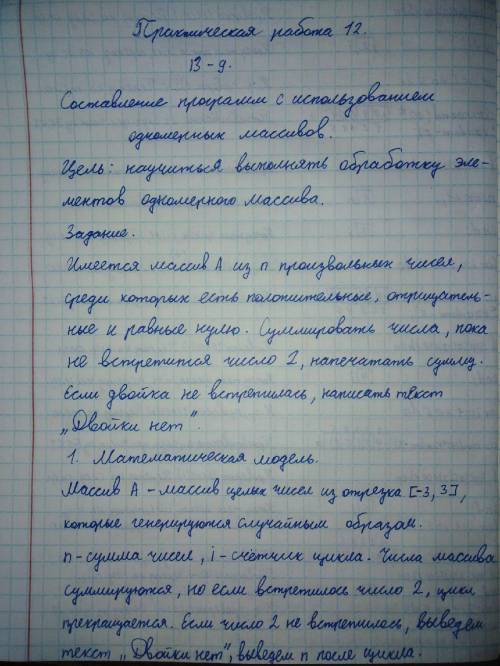 Практическая работа 12.
В-9.
Составление программ с использованием
одномерных массивов.
Цель: научиться выполнять обработку эле-
ментов одномерного массива.
Задание.
Имеется массив А из n произвольных чисел,
среди которых есть положительные, отрицатель-
ные и равные нулю. Суммировать числа, пока
не встретится число 2, напечатать сумму.
Если двойка не встретилась, написать текст
„Двойки нет".
1. Математическая модель.
Массив А - массив целых чисел из отрезка [-3, 3],
которые генерируются случайным образом.
n - сумма чисел, i - счётчик цикла. Числа массива
суммируются, но если встретилось число 2, цикл
прекращается. Если число 2 не встретилось, выведем
текст „Двойки нет", выведем n после цикла.